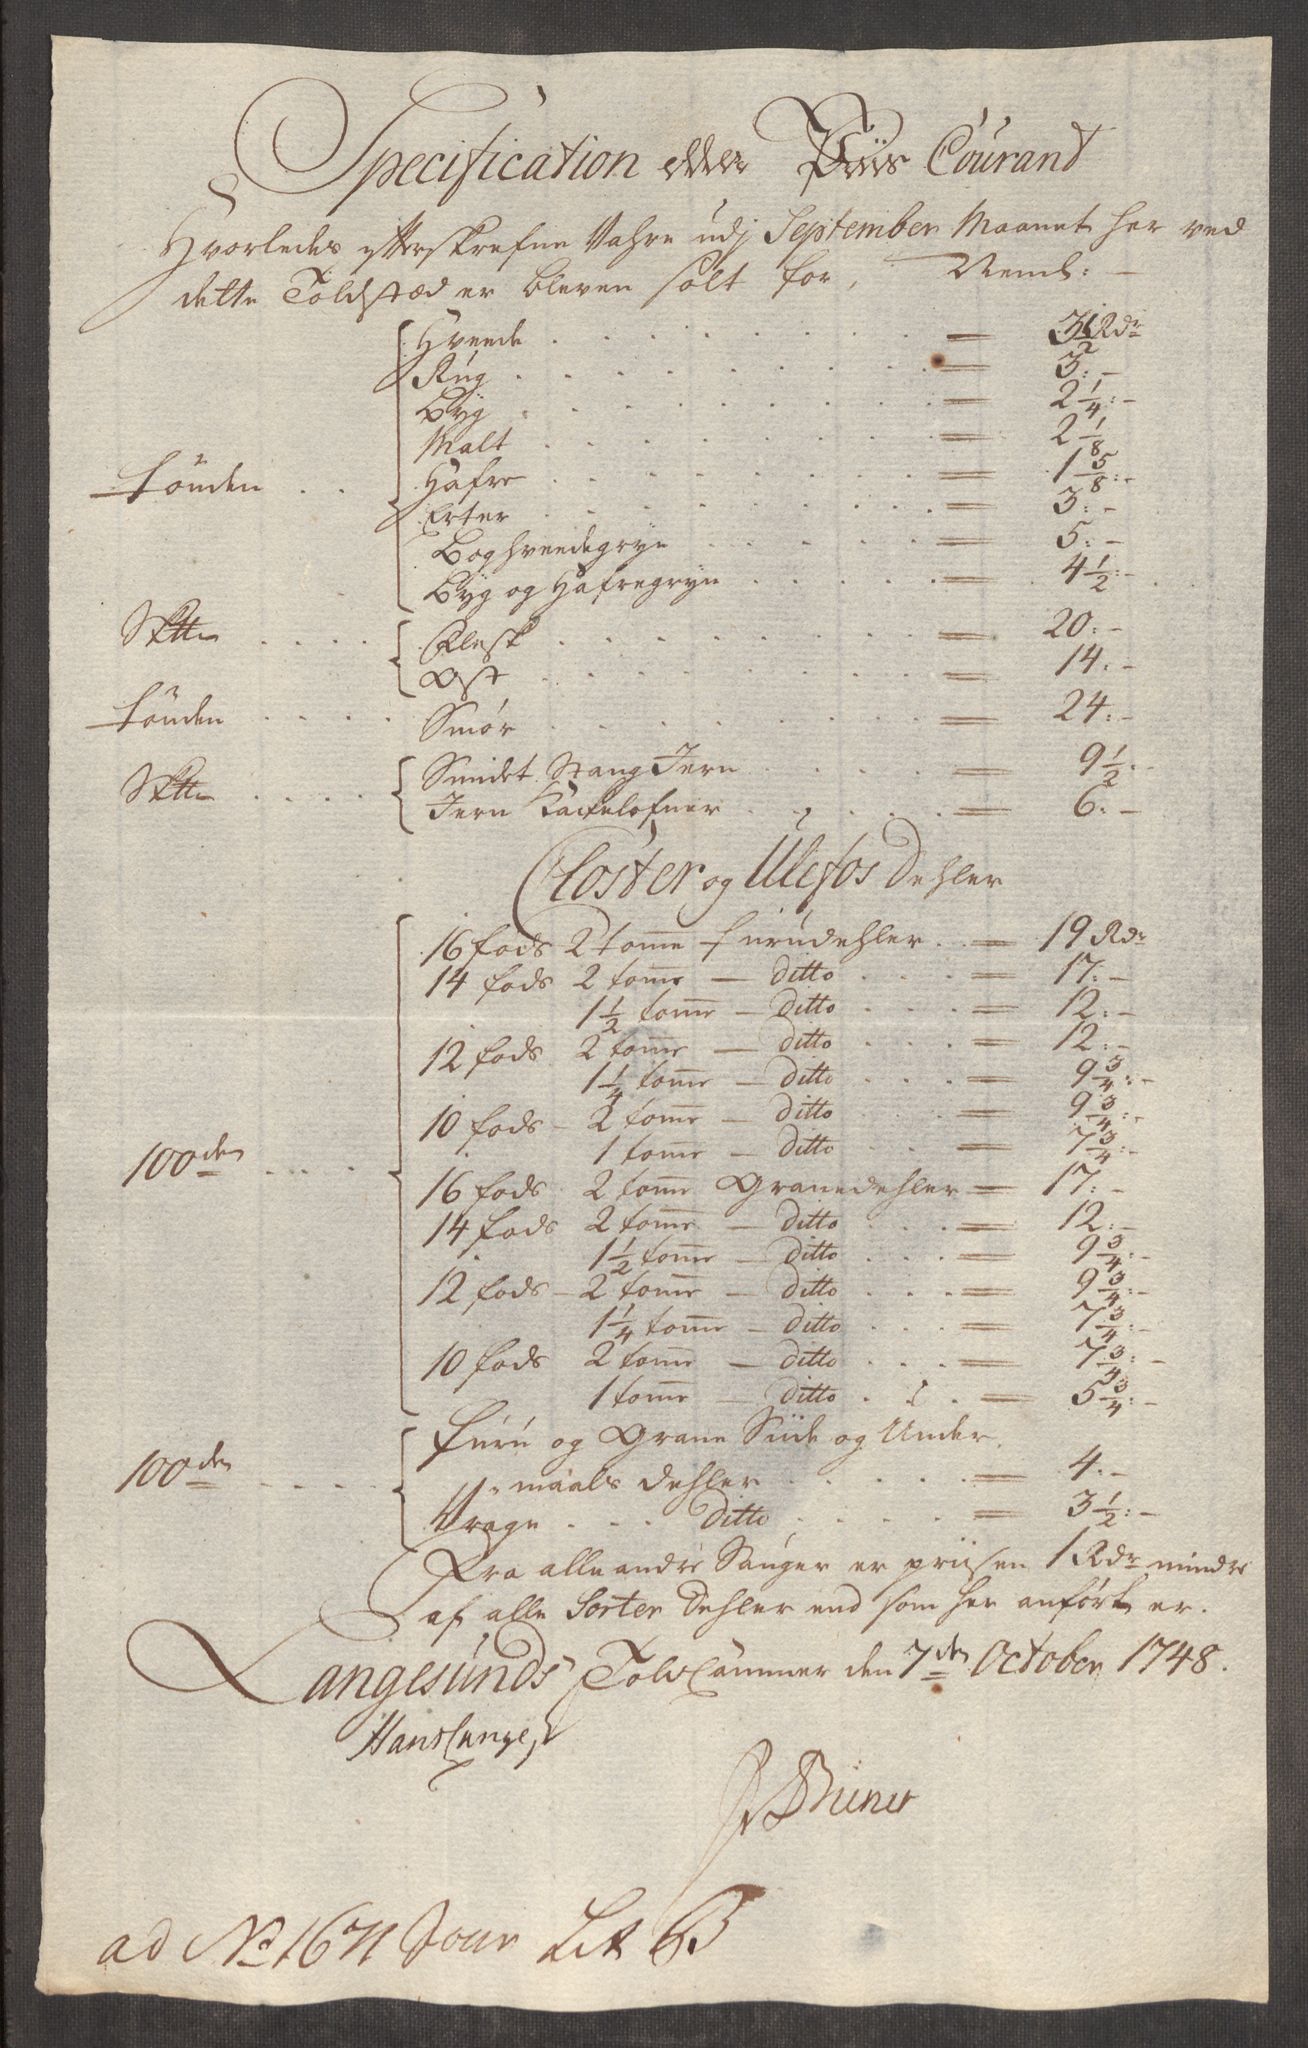 Specification eller Priis Courant
Hvorledes efterskrefne Vahre udj September Maanet her ved
dette Toldstæd er bleven solt for, Neml: -
Hvede = 3½ Rdr
Rug = 3:-
Byg = 2¼:-
Malt = 2⅛
Tönden Hafre = 1⅝:-
Erter = 3:-
Boghvedegryn = 5:-
Byg og Hafregryn = 4½:-
Flesk = 20:-
Ost = 14:-
Tönden Smör = 24:-
Smidet Stang Jern = 9½:-
Jern Kackelofner = 6:-
Closter og Ulefos Dehler
16 fods 2 tomme Furudehler = 19 Rdr
14 fods 2 tomme - ditto = 17:-
1½ tomme - ditto = 12:-
12 fods 2 tomme - ditto = 12:-
1¼ tomme - ditto = 9¾:-
10 fods - 2 tomme - ditto = 9¾:-
100den 1 tomme - ditto = 7¾:-
16 fods 2 tomme Granedehler = 17:-
14 fods 2 tomme - ditto = 12:-
1½ tomme - ditto = 9¾:-
12 fods - 2 tomme - ditto = 9¾:-
1¼ tomme - ditto = 7¾:-
10 fods 2 tomme - ditto = 7¾:-
1 tomme - ditto = 5¾:-
Furu og Grane Siide og Under
100den maals Dehler = 4:-
Vrage ditto = 3½:-
Fra alle andre Sauger er priisen 1 Rdr mindre
af alle Sorter Dehler end som her anfört er.
Langesunds Told Cammer den 7den October 1748.
Hans
ad No 1671 Jour Lit B